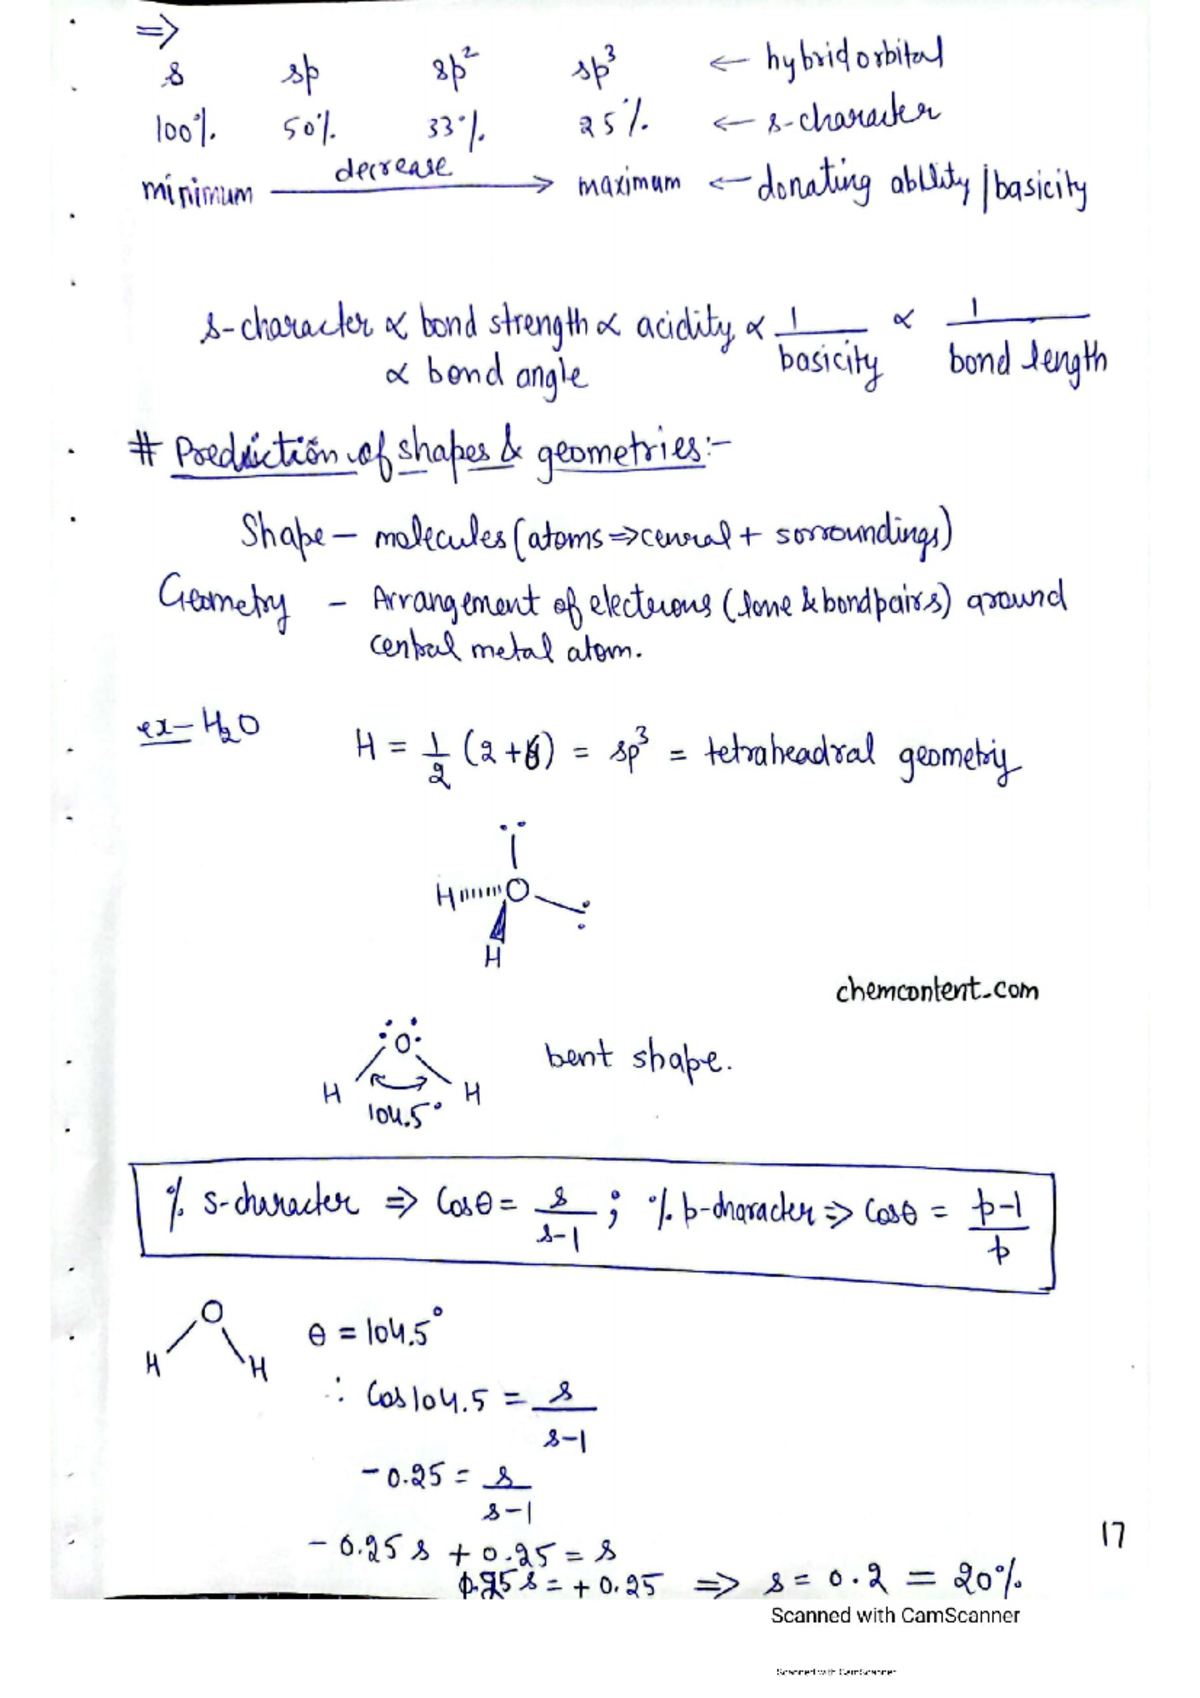 ⇒
s sp sp² sp³ ← hybrid orbital
100% 50% 33% 25% ← s-character
minimum decrease → maximum ← donating ability/basicity
s-character ∝ bond strength ∝ acidity ∝ 1/basicity ∝ 1/bond length
∝ bond angle
# Prediction of shapes & geometries:-
Shape - molecules (atoms ⇒ cenral + sorroundings)
Geometry - Arrangement of electerons (lone & bond pairs) around
central metal atom.
ex- H₂O H = 1/2 (2+6) = sp³ = tetraheadral geometry
H O
H
chemcontent.com
O
H H bent shape.
104.5°
% s-character ⇒ Cosθ = s/s-1 ; % p-character ⇒ Cosθ = p-1/p
O
H H θ = 104.5°
∴ Cos 104.5 = s/s-1
-0.25 = s/s-1
- 0.25 s + 0.25 = s
s = + 0.25 ⇒ s = 0.2 = 20%
17
Scanned with CamScanner
Scanned with CamScanner